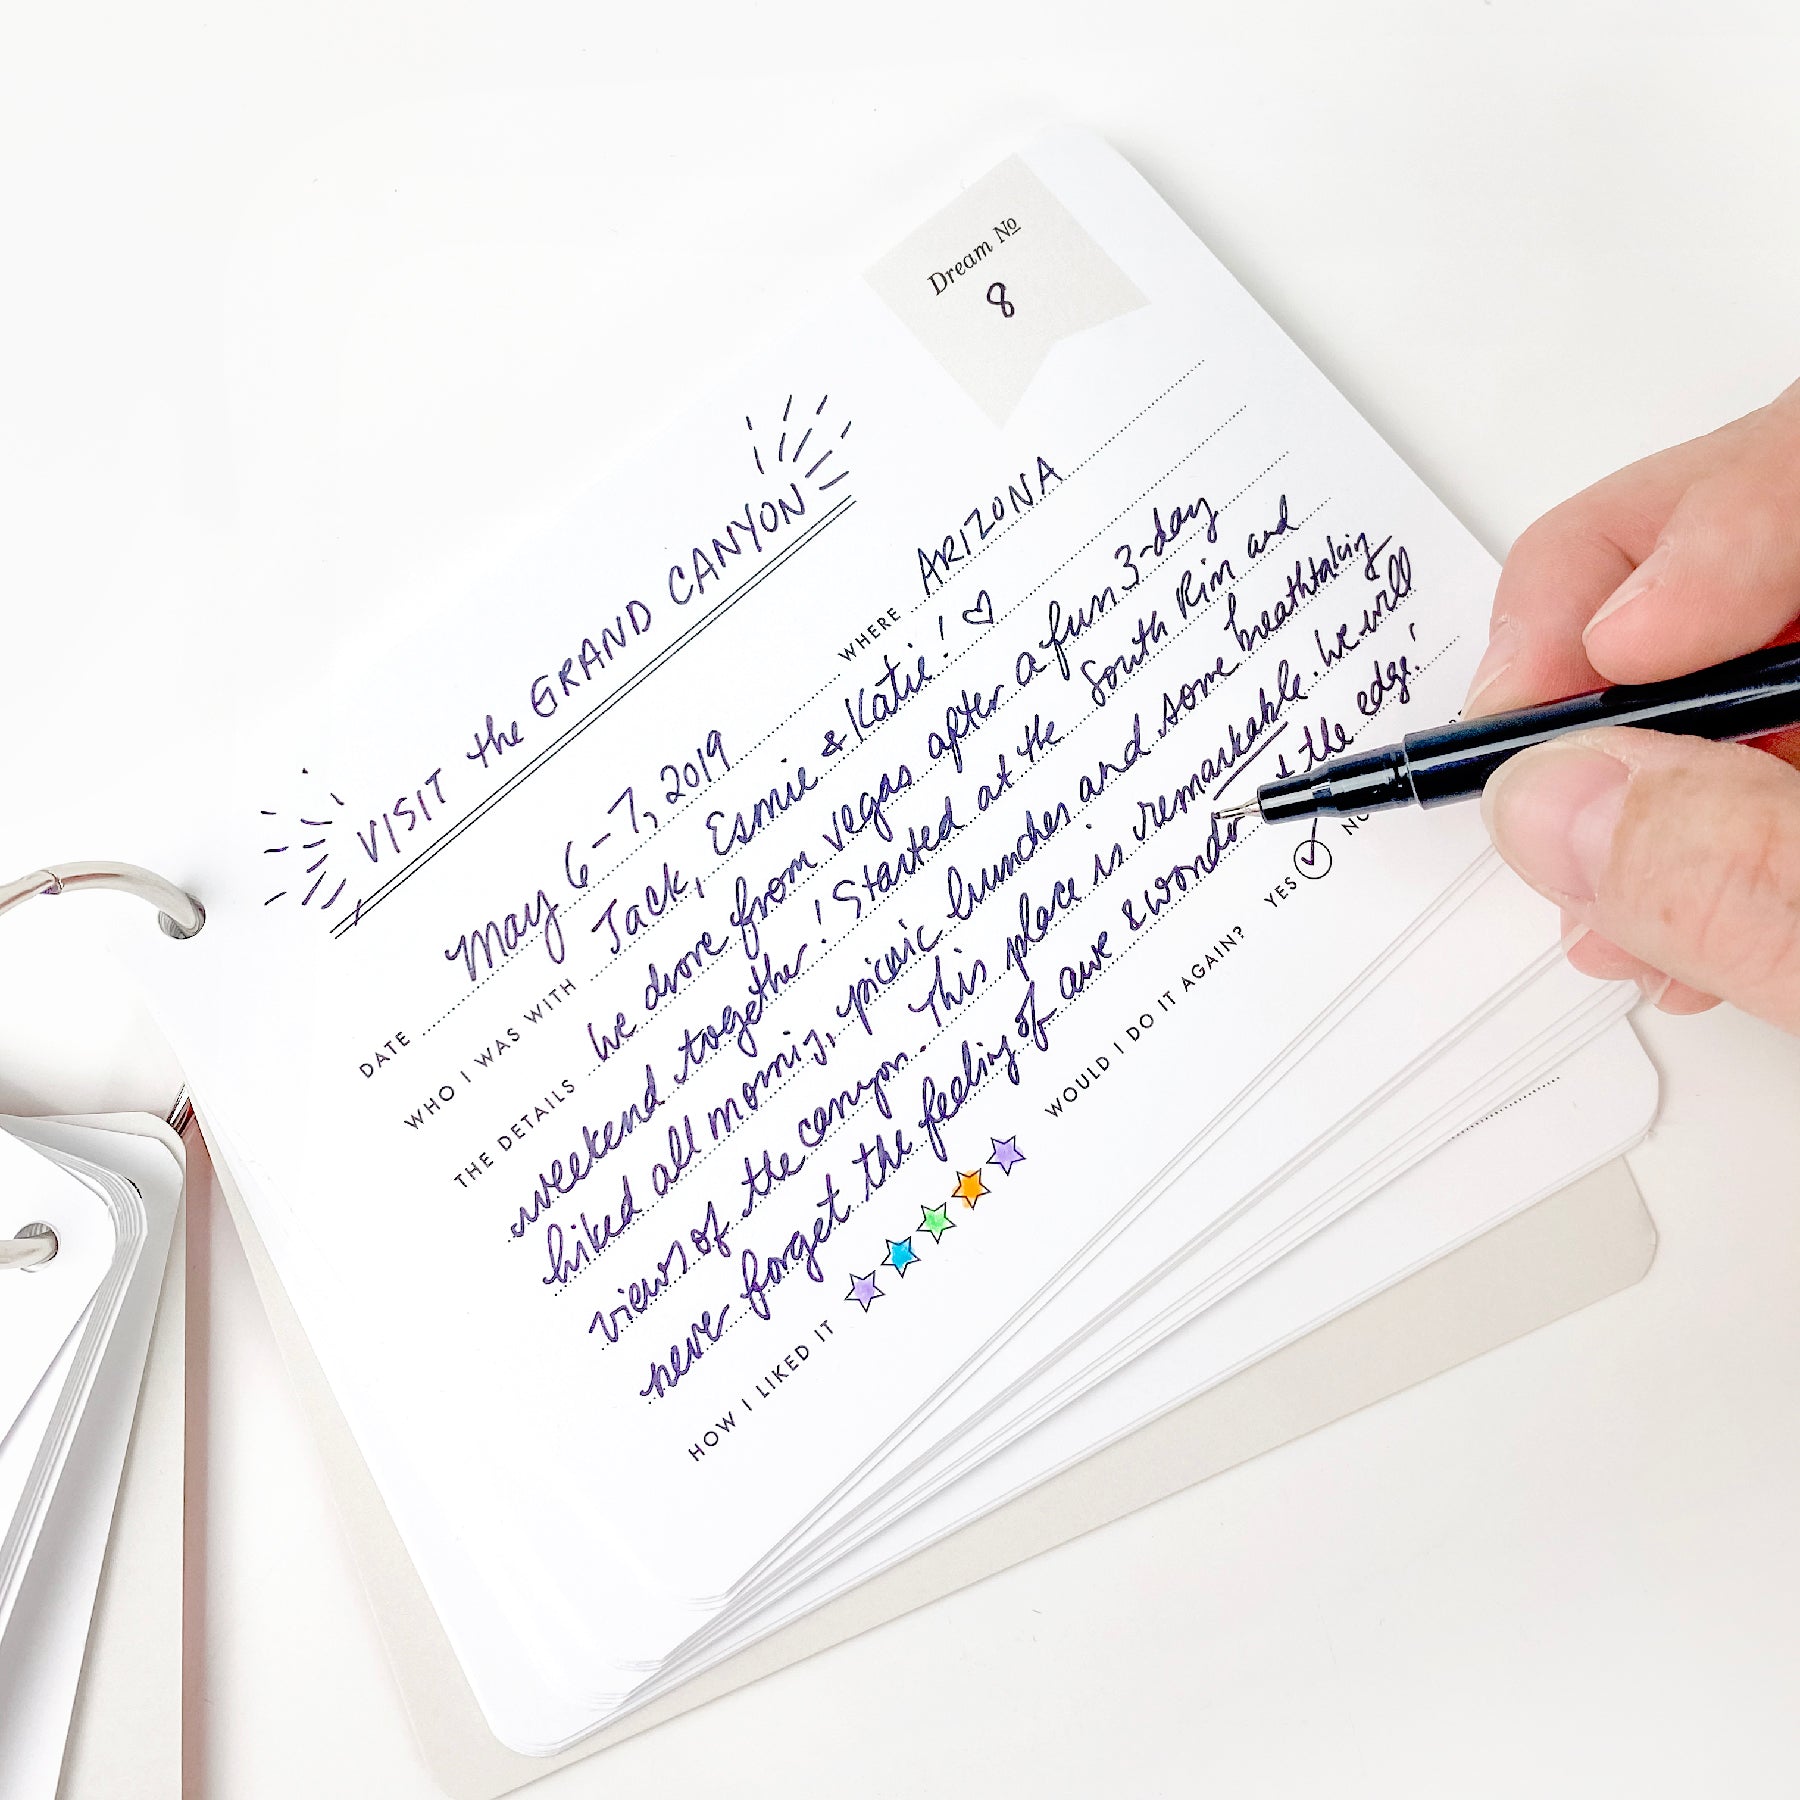 Dream №
8
VISIT the GRAND CANYON
DATE May 6-7, 2019 WHERE ARIZONA
WHO I WAS WITH Jack, Esmie & Katie! ♡
THE DETAILS We drove from Vegas after a fun 3-day
weekend together! Started at the South Rim and
hiked all morning, picnic lunches and some breathtaking
views of the canyon. This place is remarkable. We will
never forget the feeling of awe & the edge!
HOW I LIKED IT WOULD I DO IT AGAIN? YES ✓